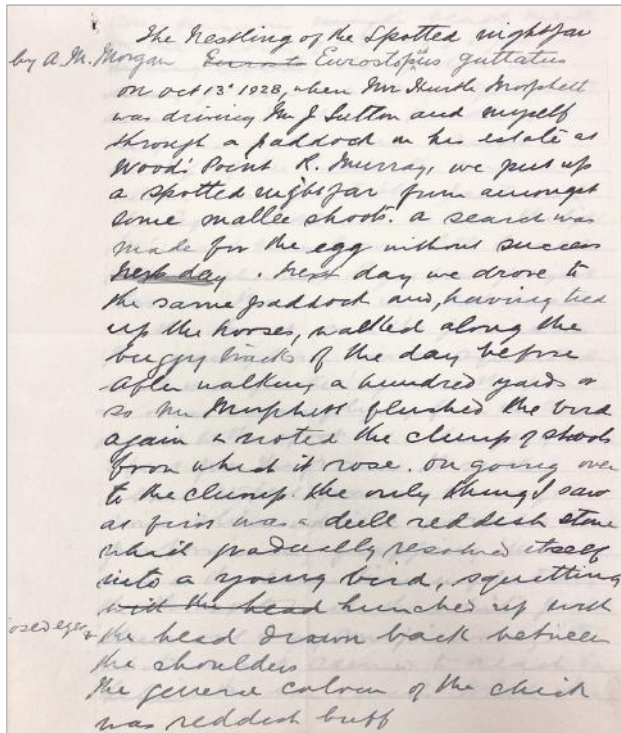 The Nestling of the Spotted nightjar
by A. M. Morgan Eurosto Eurostopus guttatus
on Oct 13th 1928, when Mr Hurtle Morphett
was driving Mr J Sutton and myself
through a paddock on his estate at
Wood's Point R. Murray, we put up
a spotted nightjar from amongst
some mallee shoots. a search was
made for the egg without success
Next day. Next day we drove to
the same paddock and, having tied
up the horses, walked along the
buggy tracks of the day before
After walking a hundred yards or
so Mr Morphett flushed the bird
again & noted the clump of shoots
from which it rose. on going over
to the clump the only thing I saw
at first was a dull reddish stone
which gradually resolved itself
into a young bird, squatting
with the head hunched up with
osed eyes & the head drawn back between
the shoulders
The general colour of the chick
was reddish buff